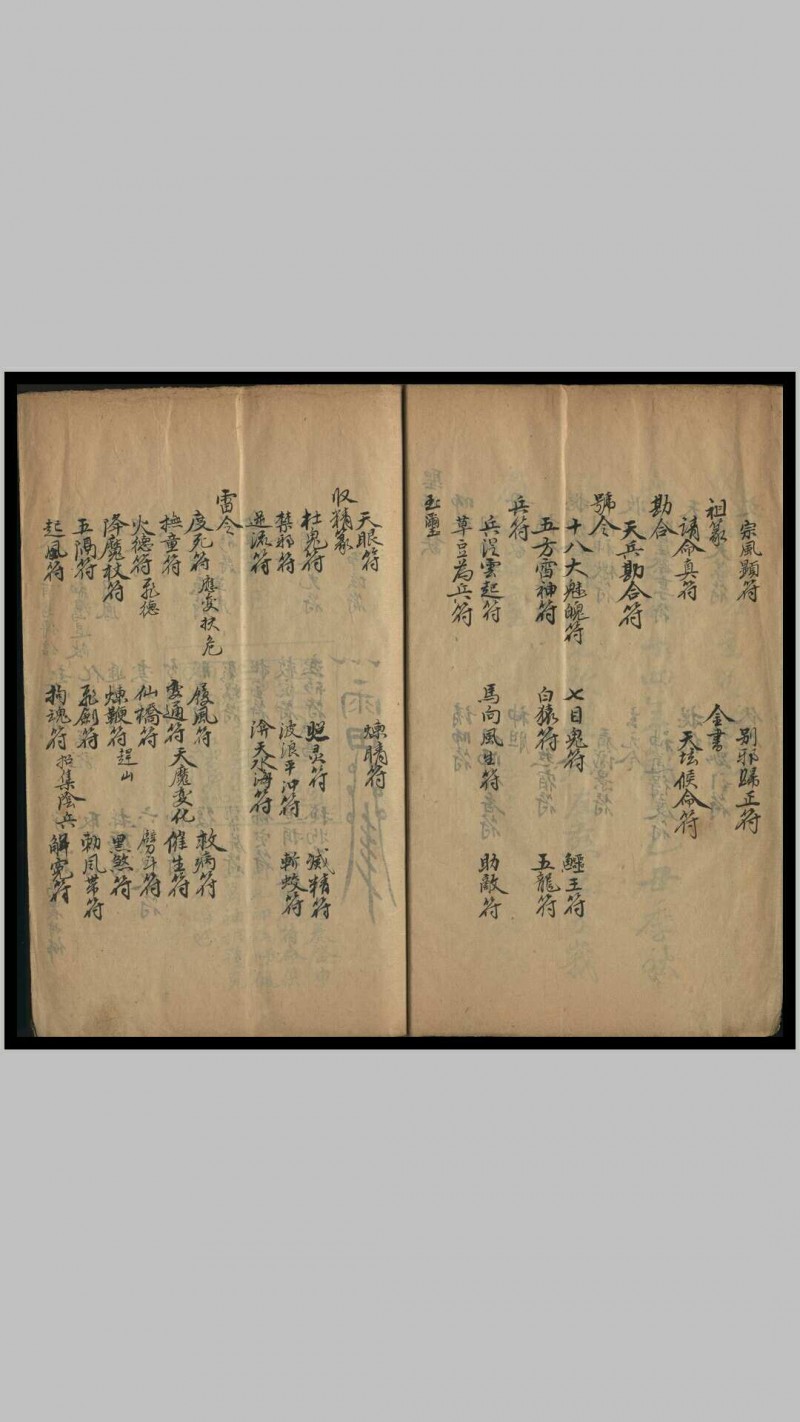 宗風顯符 别邪歸正符
祖篆 金書
請命真符 天坛候命符
勘合
天兵勘合符
號令
十八大魁魄符 七目鬼符 鰋王符
五方雷神符 白猿符 五龍符
兵符
兵從雲起符 馬向風生符 助敵符
草豆為兵符
玉璽
天眼符 煉睛符
収精篆
杜鬼符 照灵符 滅精符
禁邪符 波浪平沖符 斬蛟符
逆流符 濟天水海符
雷令
度死符 應变扶危 履風符 救病符
撫童符 变通符 天魔变化 催生符
火德符 飛德 仙橋符 劈斗符
降魔杖符 煉鞭符 趕山 黑煞符
五隔符 飛劍符 勒風帯符
起風符 拘魂符 招集陰兵 解寃符